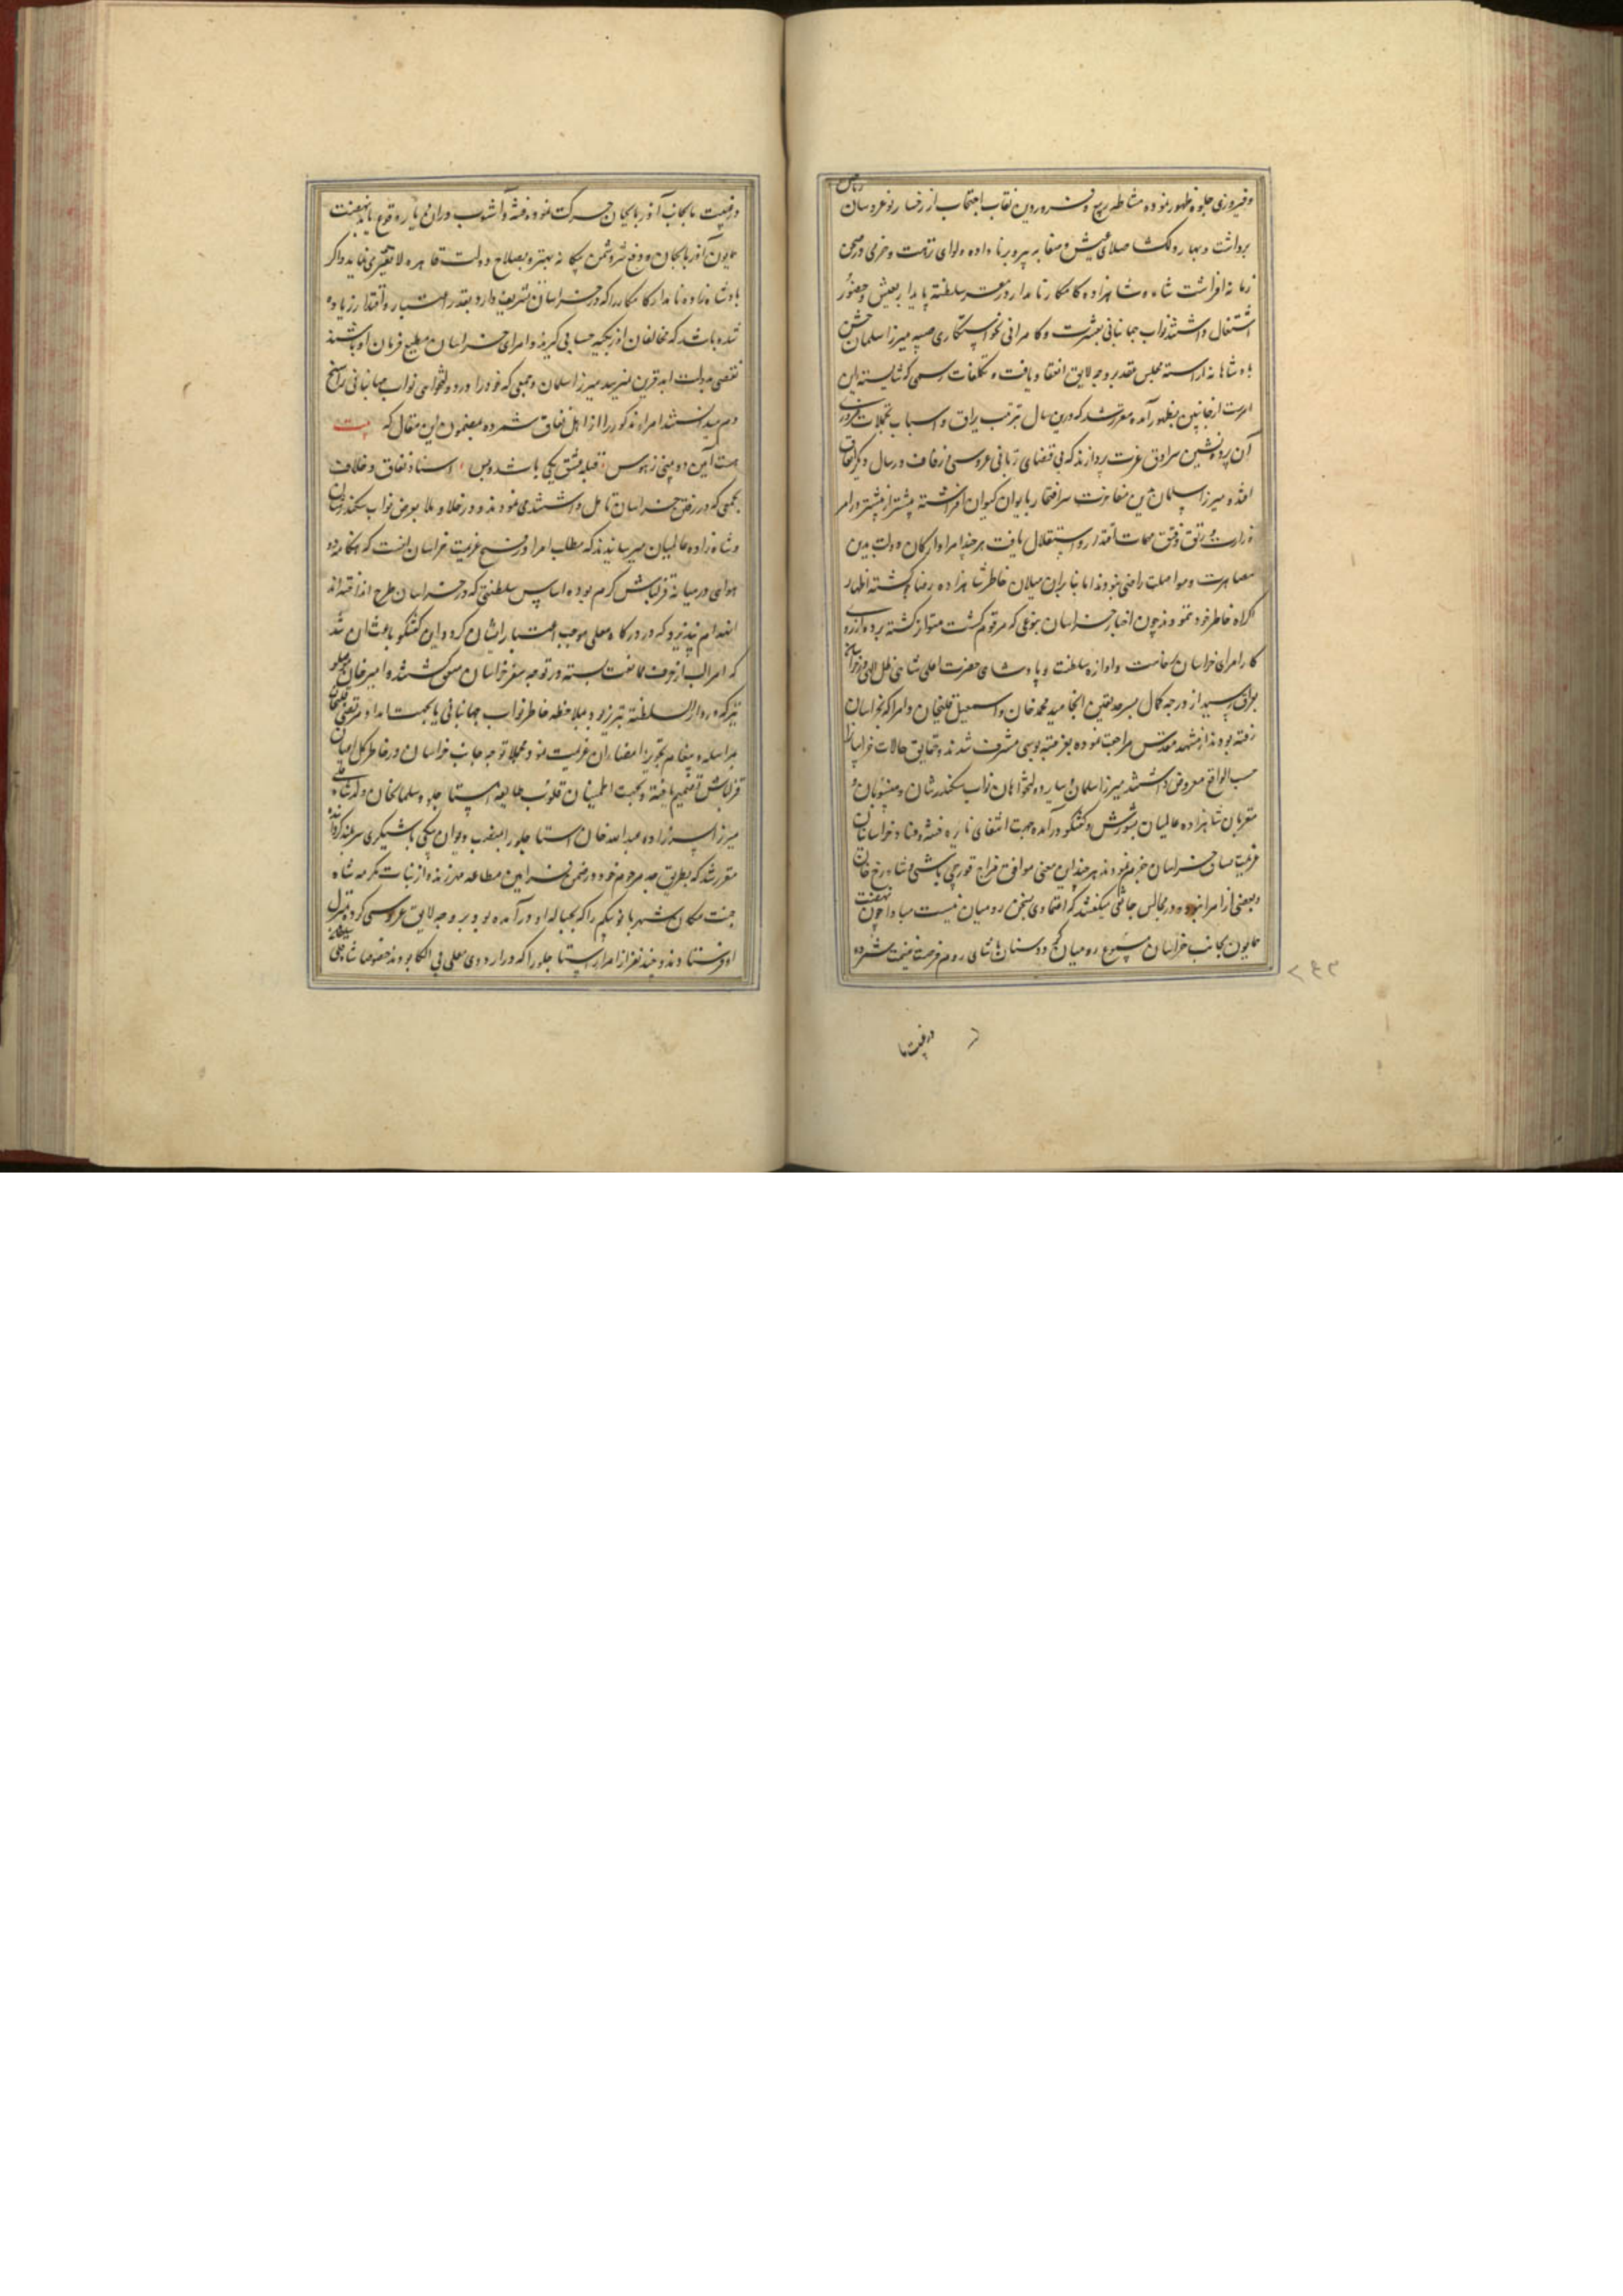 وفیروزی جلوه ظهور نموده مشاطه ربیع و فروردین نقاب احتجاب از رخسار نوعروسان ریاحین
برداشت و بهار دلگشا صلای عیش و صفا به پیر و برنا داده و لوای نزهت و خرمی در صحن
زمانه افراشت شاه و شاهزاده کامکار نامدار در مقر سلطنت پایدار بعیش و حضور
اشتغال داشتند نواب جهانبانی بعشرت و کامرانی بخواستکاری صبیه میرزا سلمان جشن
پادشاهانه آراسته مجلس عقد بر وجه لایق انعقاد یافت و تکلفات رسمی که شایسته این
امر است از جانبین بظهور آمده مقرر شد که درین سال بترتیب یراق و اسباب تجملات ضروری
آن پرده نشین سرادق عزت پردازند که بی قضای ربانی عروسی و زفاف در سال دیگر اتفاق
افتد و میرزا سلمان بدین مفاخرت سر افتخار بایوان کیوان افراشته بیشتر از پیشتر در امر
وزارت و رتق و فتق مهمات اقتدار و استقلال یافت هر چند امرا و ارکان دولت بدین
مصاهرت و مواصلت راضی نبودند اما بنابر آن میلان خاطر شاهزاده رضا گشته اظهار
اکراه خاطر خود ننمودند چون اخبار خراسان بنوعی که مرقوم گشت متواتر گشته پرده از روی
کار امرای خراسان برخاست و اوازه سلطنت و پادشاهی حضرت اعلی شاهی ظل اللهی در خراسان
بعراق رسید از درجه کمال بسرحد یقین انجامید محمد خان و اسمعیل قلیخان و امرا که بخراسان
رفته بودند از مشهد مقدس مراجعت نموده بعز عتبه بوسی مشرف شدند و حقایق حالات خراسان را
حسب الواقع معروض داشتند میرزا سلمان و سایر دولتخواهان نواب سکندر شان و منسوبان و
مقربان شاهزاده عالمیان بشورش و گفتگو درآمده جهت انتفای نایره فتنه و فساد خراسانیان
عزیمت سفر خراسان جزم نمودند هر چند این معنی موافق مزاج قورچی باشی و شاهرخ خان
و بعضی از امرا نبوده در مجالس جانقی میگفتند که اعتمادی بسخن رومیان نیست مبادا چون نهضت
همایون بجانب خراسان مسموع رومیان گردد سنان پاشای روم فرصت غنیمت شمرده
۲۴۳
در غیبت ما
در غیبت ما بجانب آذربایجان حرکت نموده فتنه و آشوب در آن دیار وقوع یابد نهضت
همایون آذربایجان و دفع شر دشمن بیگانه بهتر و بصلاح دولت قاهره لایقتر می نماید و اگر
پادشاه زاده نامدار کامکار را که در خراسان تشریف دارد بقدر اعتبار و اقتدار زیاده
شده باشد که مخالفان ازبکیه حسابی گیرند و امرای خراسان مطیع فرمان او باشند
نقصی بدولت ابد قرین نمیرسد میرزا سلمان و جمعی که خود را در دولتخواهی نواب جهانبانی راسخ
دم میدانستند امراء مذکور را از اهل نفاق شمرده مضمون این مقال که بیت
هست آئین دو بینی ز هوس قبله عشق یکی باشد و بس اسناد نفاق و خلاف
بجمعی که در رفتن خراسان تامل داشتند می نمودند و در خلا و ملا بعرض نواب سکندر شان
و شاه زاده عالمیان میرسانیدند که مطلب امرا در فسخ عزیمت خراسان انست که هنگامه دو
هوایی در میانه قزلباش گرم بوده اساس سلطنتی که در خراسان طرح انداخته اند
انهدام نپذیرد که در درگاه معلی موجب اعتبار ایشان گردد این گفتگو باعث آن شد
که امرا لب از حرف ممانعت بسته در توجه سفر خراسان متفق شدند و امیر خان
نیز که در دار السلطنه تبریز بود بملاحظه خاطر نواب جهانبانی یا بجهت امداد مرتضی قلیخان
بمراسله و پیغام تجویز امضاء آن عزیمت نمود مجملا توجه جانب خراسان در خاطر کل اعیان
قزلباش تصمیم یافته و بجهت اطمینان قلوب طایفه استاجلو سلمانخان ولد شاه قلی
میرزا پسر زاده عبدالله خان استاجلو را بمنصب دیوان بیگی باشیگری سربلند گردانیده
مقرر شد که بطریق جد مرحوم خود در ضمن فرامین مطاعه مهر زند و از بنات مکرمه شاه
جنت مکان شهربانو بیگم را که بحباله او در آمده بود بر وجه لایق عروسی کرده بمنزل
او فرستادند و چند نفر از امراء استاجلو را که در اردوی معلی بی الکا بودند خصوصا شاهقلی سلطان